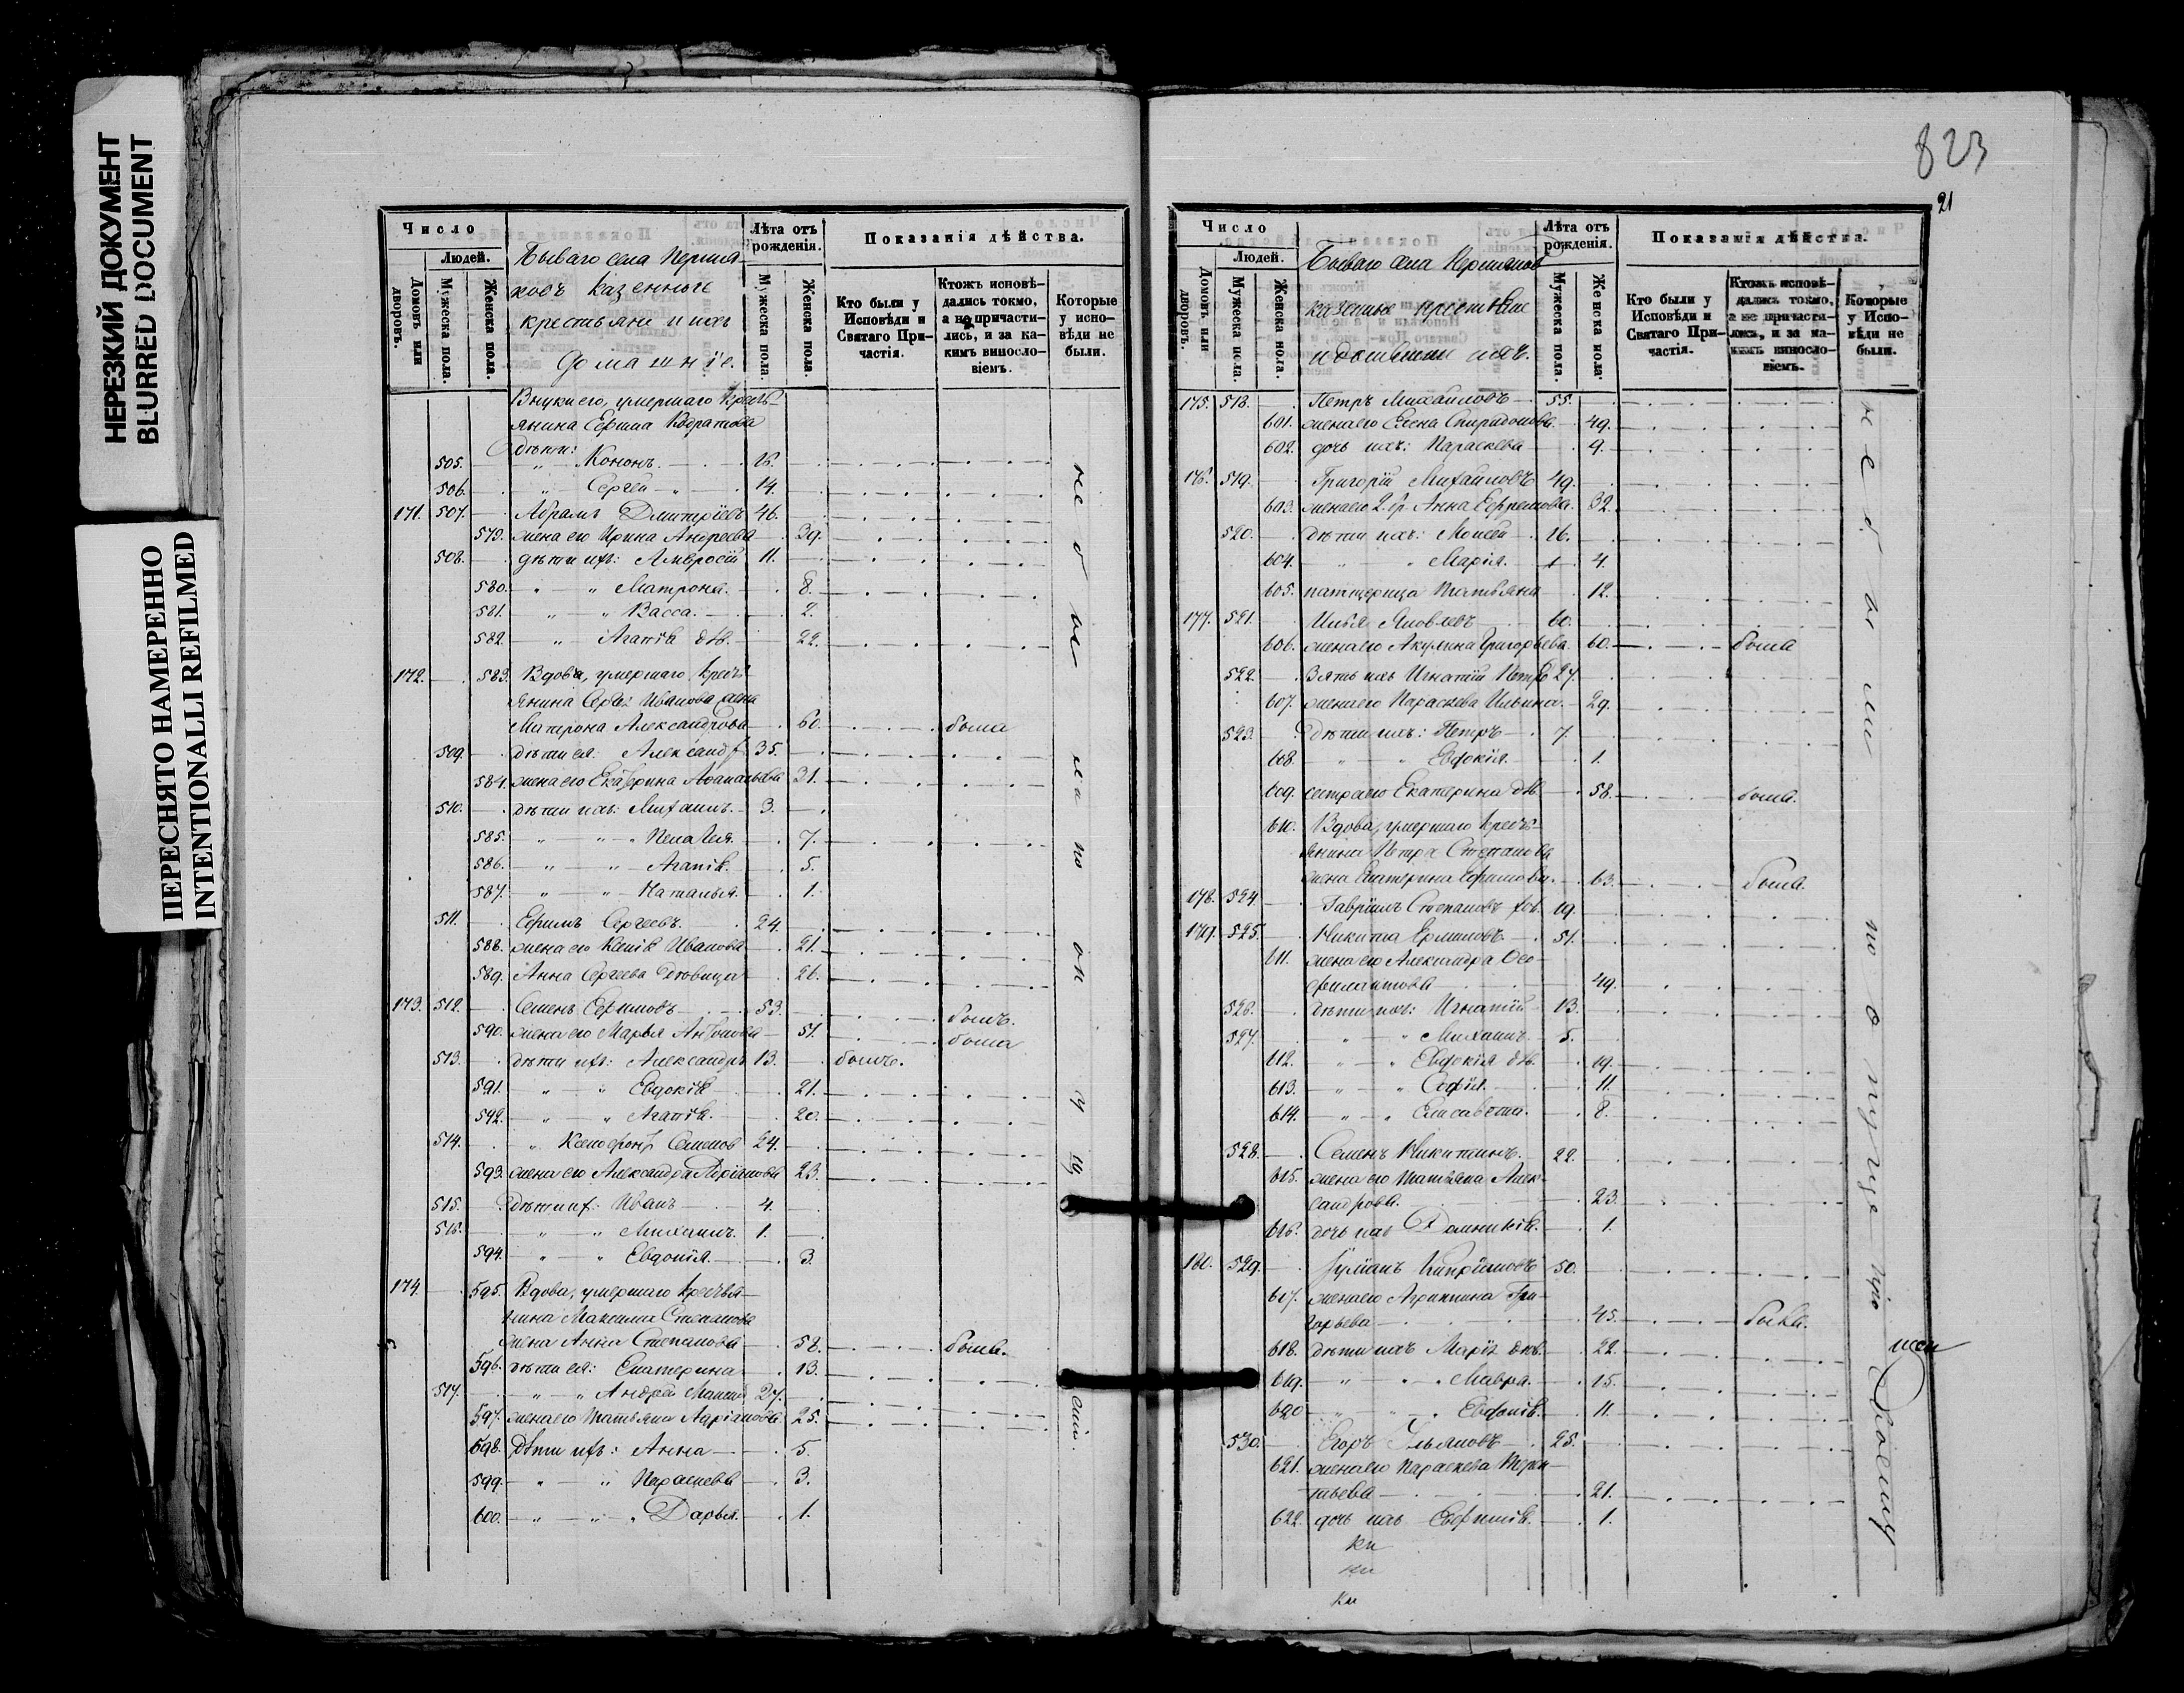 НЕРЕЗКИЙ ДОКУМЕНТ
BLURRED DOCUMENT
ПЕРЕСНЯТО НАМЕРЕННО
INTENTIONALLI REFILMED
Число
Людей.
Домовъ или дворовъ.
Мужеска пола.
Женска пола.
Бываго села
ковъ казенные
крестьяне и ихъ
домашніе.
Лѣта отъ рожденія.
Мужеска пола.
Женска пола.
Показанія дѣйства.
Кто были у Исповѣди и Святаго Причастія.
Ктожъ исповѣдались токмо, а не причастились, и за какимъ винословіемъ.
Которые у исповѣди не были.
Внуки его, умершаго крест-
янина Ефима
дѣти:
505. Кононъ. 16.
506. Сергей 14.
171. 507. Абрамъ Димитріевъ 46.
579. жена его Ирина Андреева 39.
508. дѣти ихъ: Амвросій 11.
580. " " Матрона. 8.
581. " " Васса. 2.
582. " Агапія дѣв. 22.
172. 583. Вдова, умершаго крест-
янина Сергѣя Иванова жена
Матрона Александрова 60. была
509. дѣти ея: Александръ 35.
584. жена его Екатерина 31.
510. дѣти ихъ: Михаилъ. 3.
585. " " Пелагея. 7.
586. " " Агапія. 5.
587. " " Наталья. 1.
511. Ефимъ Сергеевъ. 24.
588. жена его Ксенія Иванова 21.
589. Анна Сергеева дѣвица 26.
173. 512. Семенъ Ефимовъ 53. былъ.
590. жена его Марья Антонова 51. была
513. дѣти ихъ: Александръ 13. былъ.
591. " " Евдокія 21.
592. " " Агапія. 20.
514. " Ксенофонтъ Семенов 24.
593. жена его Александра Адріанова 23.
515. дѣти их: Иванъ 4.
516. " " Михаилъ. 1.
594. " " Евдокія. 3.
174. 595. Вдова, умершаго крестья-
нина Максима Степанова
жена Анна Степанова 58. была.
596. дѣти ея: Екатерина 13.
517. " " Андрей 27.
597. жена его Татьяна Адріанова 25.
598. Дѣти ихъ: Анна 5.
599. " " Параскева 3.
600. " " Дарья. 1.
823
21
Число
Людей.
Домовъ или дворовъ.
Мужеска пола.
Женска пола.
Бываго села
казенные крестьяне
и домашніи ихъ.
Лѣта отъ рожденія.
Мужеска пола.
Женска пола.
Показанія дѣйства.
Кто были у Исповѣди и Святаго Причастія.
Ктожъ исповѣдались токмо, а не причастились, и за какимъ винословіемъ.
Которые у Исповѣди не были.
175. 518. Петръ Михайловъ 55.
601. жена его Елена Спиридонова. 49.
602. дочь ихъ: Параскева 9.
176. 519. Григорій Михайловъ 49.
603. жена его 2. бр. Анна Ефремова. 32.
520. дѣти ихъ: Моисей 16.
604. " " Марія. 4.
605. патщерица Татьяна 12.
177. 521. Илья Яковлевъ 60.
606. жена его Акулина Григорьева. 60. была
522. Зять ихъ Игнатій Петр 27.
607. жена его Параскева Ильина. 29.
523. Дѣти ихъ: Петръ 7.
608. " " Евдокія. 1.
609. сестра его Екатерина дѣв. 58. была.
610. Вдова, умершаго крест-
янина Петра Степанова
жена Екатерина Ефимова. 63. была.
178. 524. Гавріилъ Степановъ 19.
179. 525. Никита 51.
611. жена его Александра Фео-
филактова 49.
526. дѣти ихъ: Игнатій 13.
527. " " Михаилъ. 5.
612. " " Евдокія дѣв. 19.
613. " " Софія. 11.
614. " " Елисавета. 8.
528. Семенъ Никитинъ. 22.
615. жена его Татьяна Алек-
сандрова. 23.
616. дочь их Домникія. 1.
180. 529. Кипріановъ 50.
617. жена его Агрипина Гри-
горьева 45. была.
618. дѣти ихъ Марія дѣв. 22.
619. " " Мавра. 15.
620 " " Евдокія. 11.
530. Егоръ Ульяновъ 25.
621. жена его Параскева Терен-
тьева 21.
622. дочь ихъ 1.